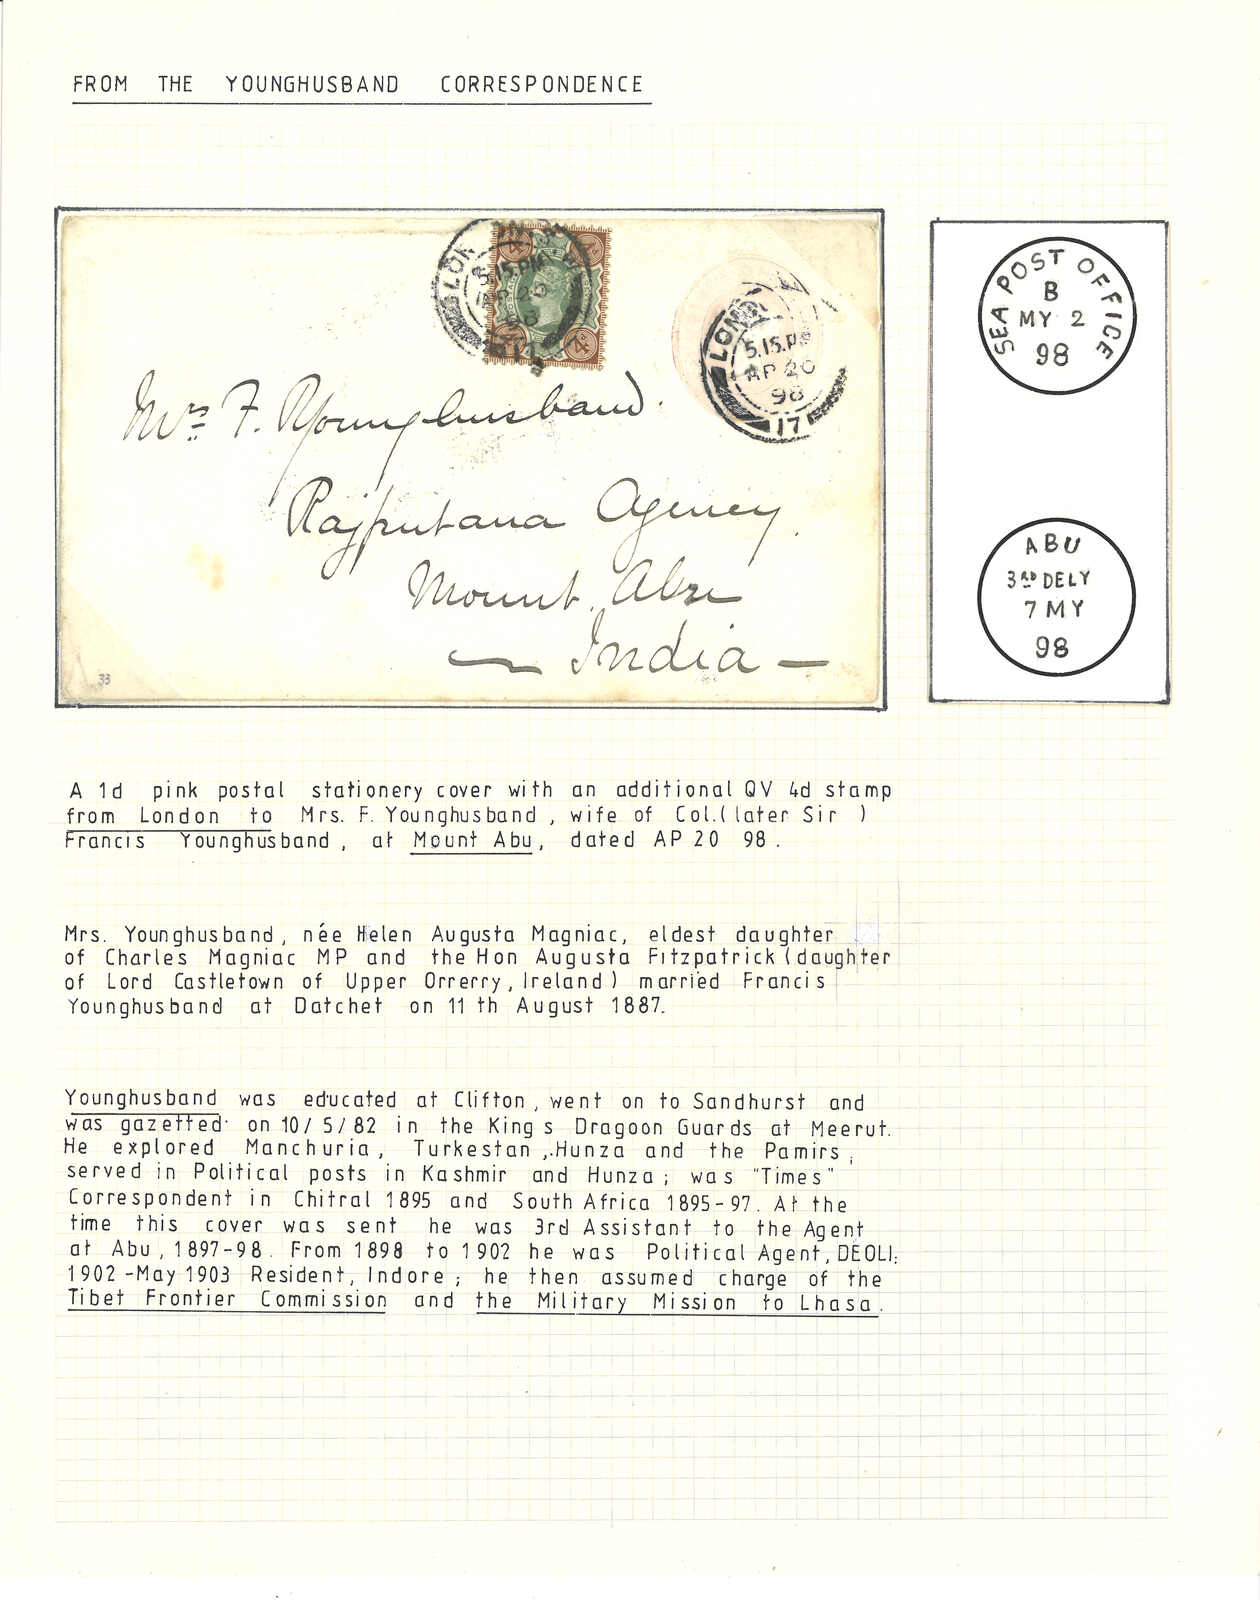 FROM THE YOUNGHUSBAND CORRESPONDENCE
4d
5.15.PM
AP 20
98
17
4d
LON
5.15.PM
AP 20
98
17
Mrs F. Younghusband.
Rajputana Agency.
Mount Abu
India
33
SEA POST OFFICE
B
MY 2
98
ABU
3RD DELY
7 MY
98
A 1d pink postal stationery cover with an additional QV 4d stamp
from London to Mrs. F. Younghusband, wife of Col.(later Sir )
Francis Younghusband, at Mount Abu, dated AP 20 98.
Mrs. Younghusband, née Helen Augusta Magniac, eldest daughter
of Charles Magniac MP and the Hon Augusta Fitzpatrick (daughter
of Lord Castletown of Upper Orrerry, Ireland) married Francis
Younghusband at Datchet on 11 th August 1887.
Younghusband was educated at Clifton, went on to Sandhurst and
was gazetted on 10/ 5/82 in the King s Dragoon Guards at Meerut.
He explored Manchuria, Turkestan, Hunza and the Pamirs;
served in Political posts in Kashmir and Hunza; was "Times"
Correspondent in Chitral 1895 and South Africa 1895-97. At the
time this cover was sent he was 3rd Assistant to the Agent
at Abu, 1897-98. From 1898 to 1902 he was Political Agent, DEOLI;
1902 -May 1903 Resident, Indore; he then assumed charge of the
Tibet Frontier Commission and the Military Mission to Lhasa.